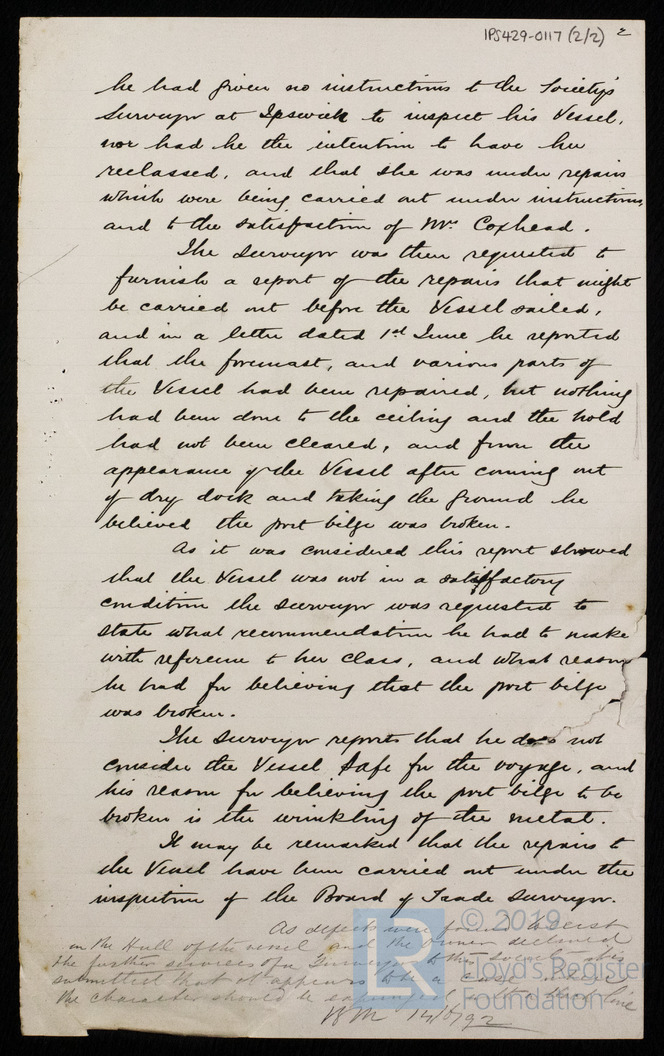 IPS429-0117 (2/2) 2
he had given no instructions to the Society's
Surveyor at Ipswich to inspect his Vessel,
nor had he the intention to have her
reclassed, and that she was under repairs
which were being carried out under instructions,
and to the satisfaction of Mr Coxhead.
The Surveyor was then requested to
furnish a report of the repairs that might
be carried out before the Vessel sailed,
and in a letter dated 1st June he reported
that the foremast, and various parts of
the Vessel had been repaired, but nothing
had been done to the ceiling and the hold
had not been cleared, and from the
appearance of the Vessel after coming out
of dry dock and taking the ground he
believed the port bilge was broken.
As it was considered this report showed
that the Vessel was not in a satisfactory
condition the Surveyor was requested to
state what recommendation he had to make
with reference to her Class, and what reason
he had for believing that the port bilge
was broken.
The Surveyor reports that he does not
consider the Vessel safe for the voyage, and
his reason for believing the port bilge to be
broken is the wrinkling of the metal.
It may be remarked that the repairs to
the Vessel have been carried out under the
inspection of the Board of Trade Surveyor.
As defects were found to exist
in the Hull of the vessel and the Owner declined
the further services of a Surveyor to this Society it is
submitted that it appears to be a case where
the character should be expunged
14/6/92
© 2019
LR
Lloyd's Register
Foundation